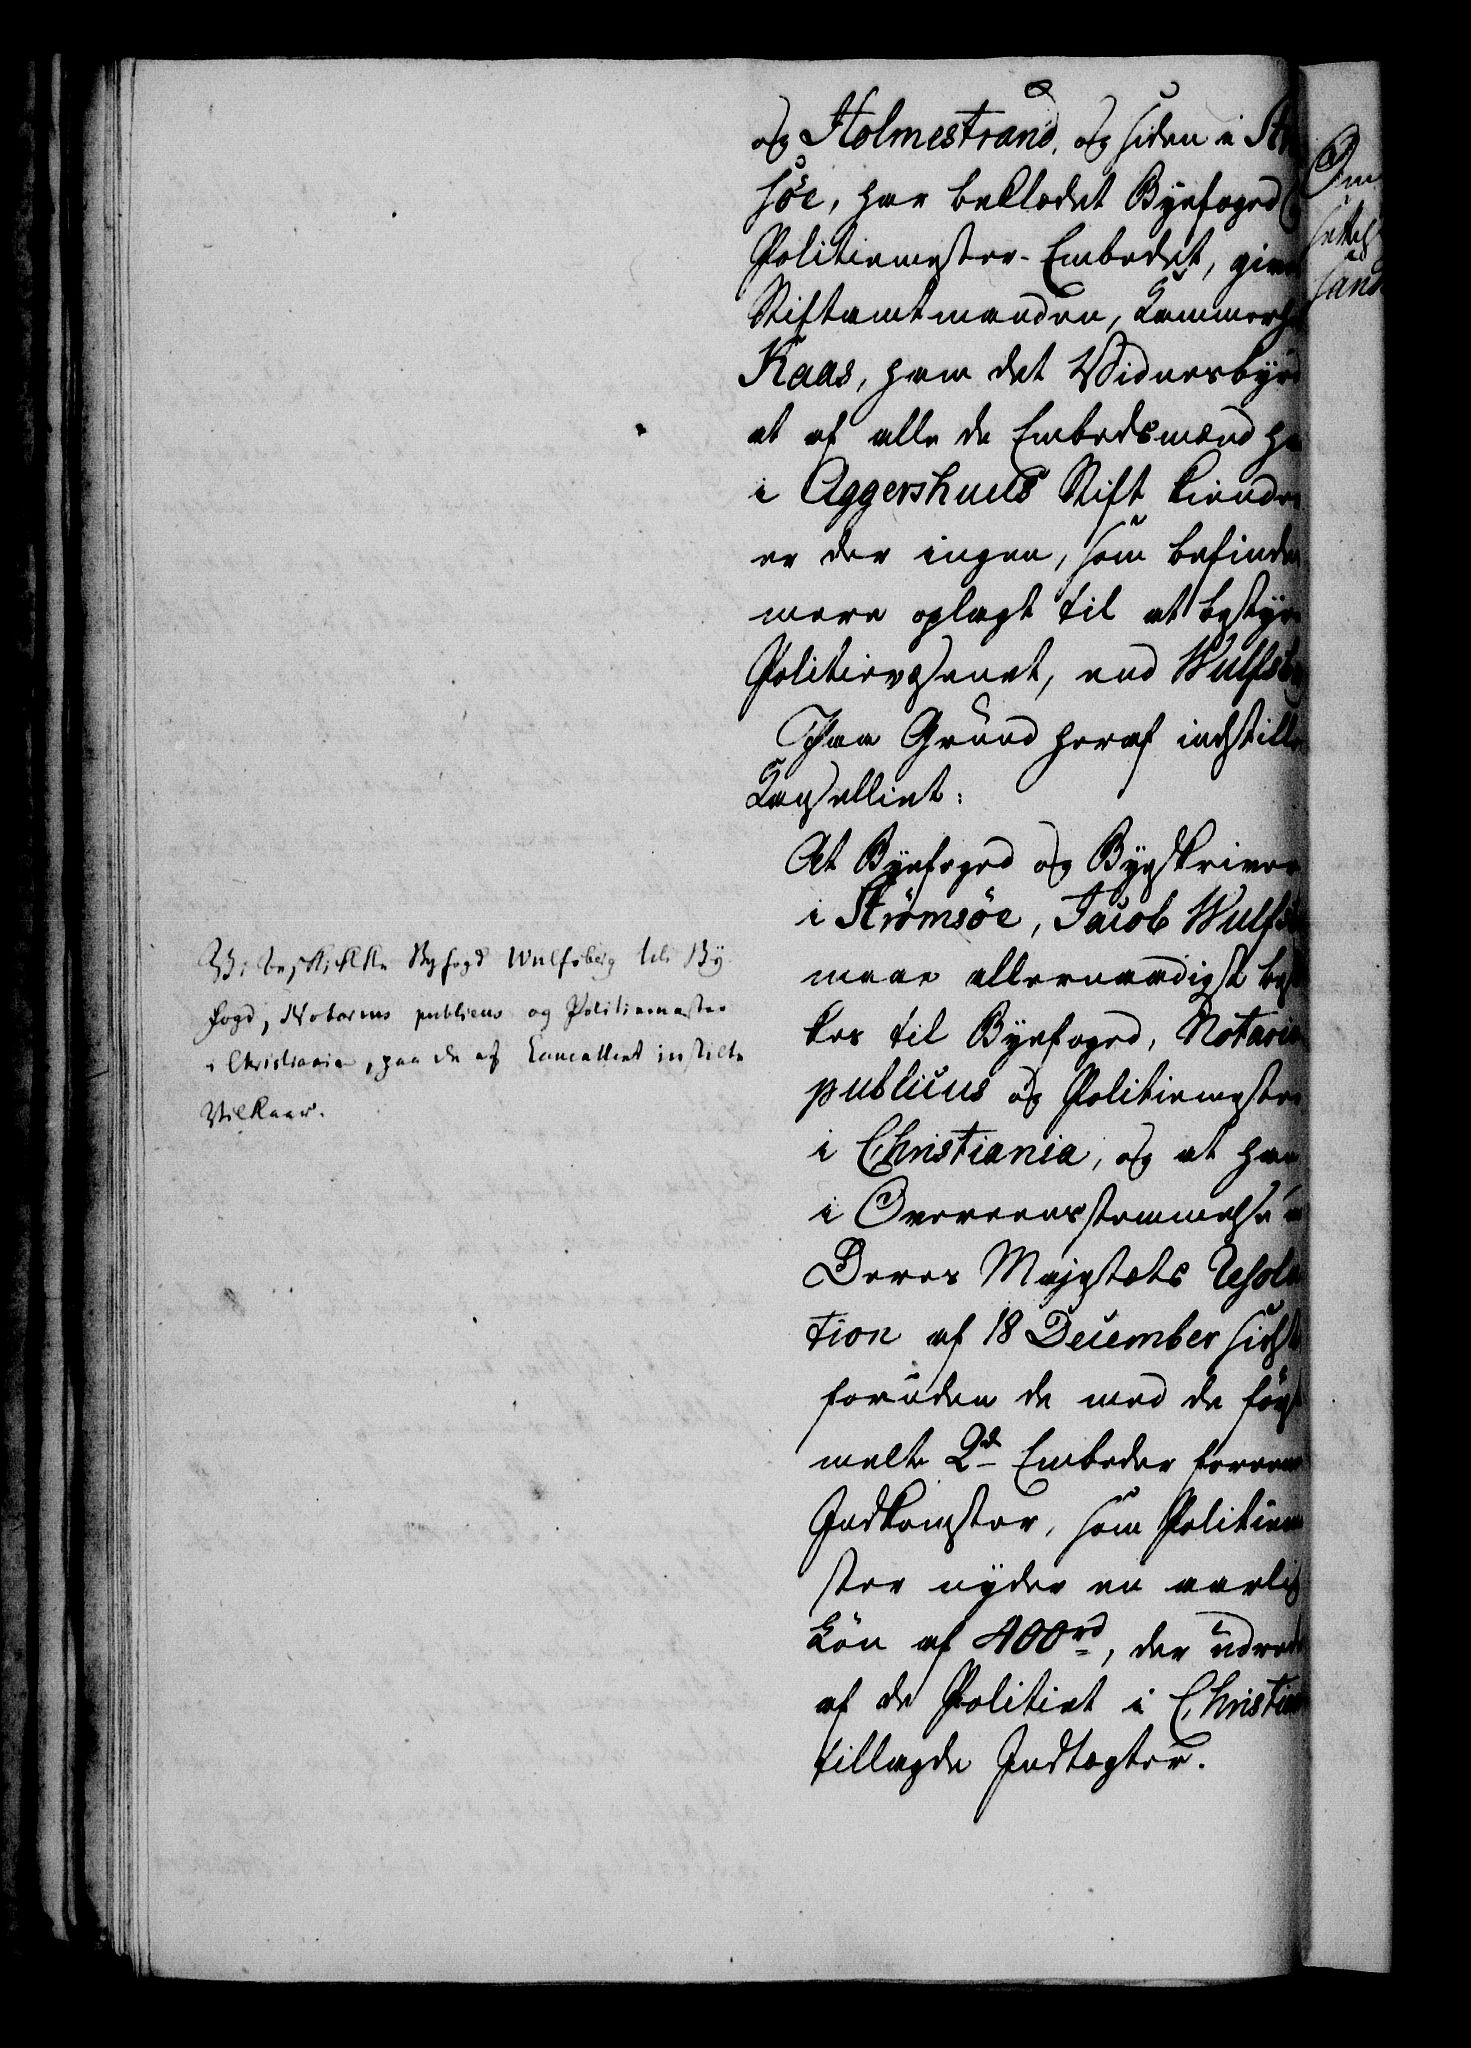 og Holmestrand, og siden i
søe, har beklædet Byefoged
Politiemester-Embedet, giver
Stiftamtmanden, Kammerh
Kaas, ham det Vidnesbyrd
at af alle de Embedsmænd h
i Aggershuus Stift kiender
er der ingen, som befindes
mere oplagt til at bestyre
Politievæsenet, end Wulfsb
Paa Grund heraf indstiller
Kancelliet:
At Byefoged og Byeskriver
i Strømsøe, Jacob Wulfsb
maae allernaadigst besk
kes til Byefoged, Notarius
publicus og Politiemester
i Christiania, og at han
i Overeensstemmelse
Deres Majestæts Resolu
tion af 18 December sidst
foruden de med de først
melte 2de Embeder foreenede
Indkomster, som Politieme
ster nyder en aarlig
Løn af 400 rd, der udredes
af de Politiet i Christia
tillagde Indtægter.
Vi beskikke Byfogd Wulfsberg til By
fogd, Notarius publicus og Politiemester
i Christiania, paa de af Cancelliet instilte
Vilkaar.
Om